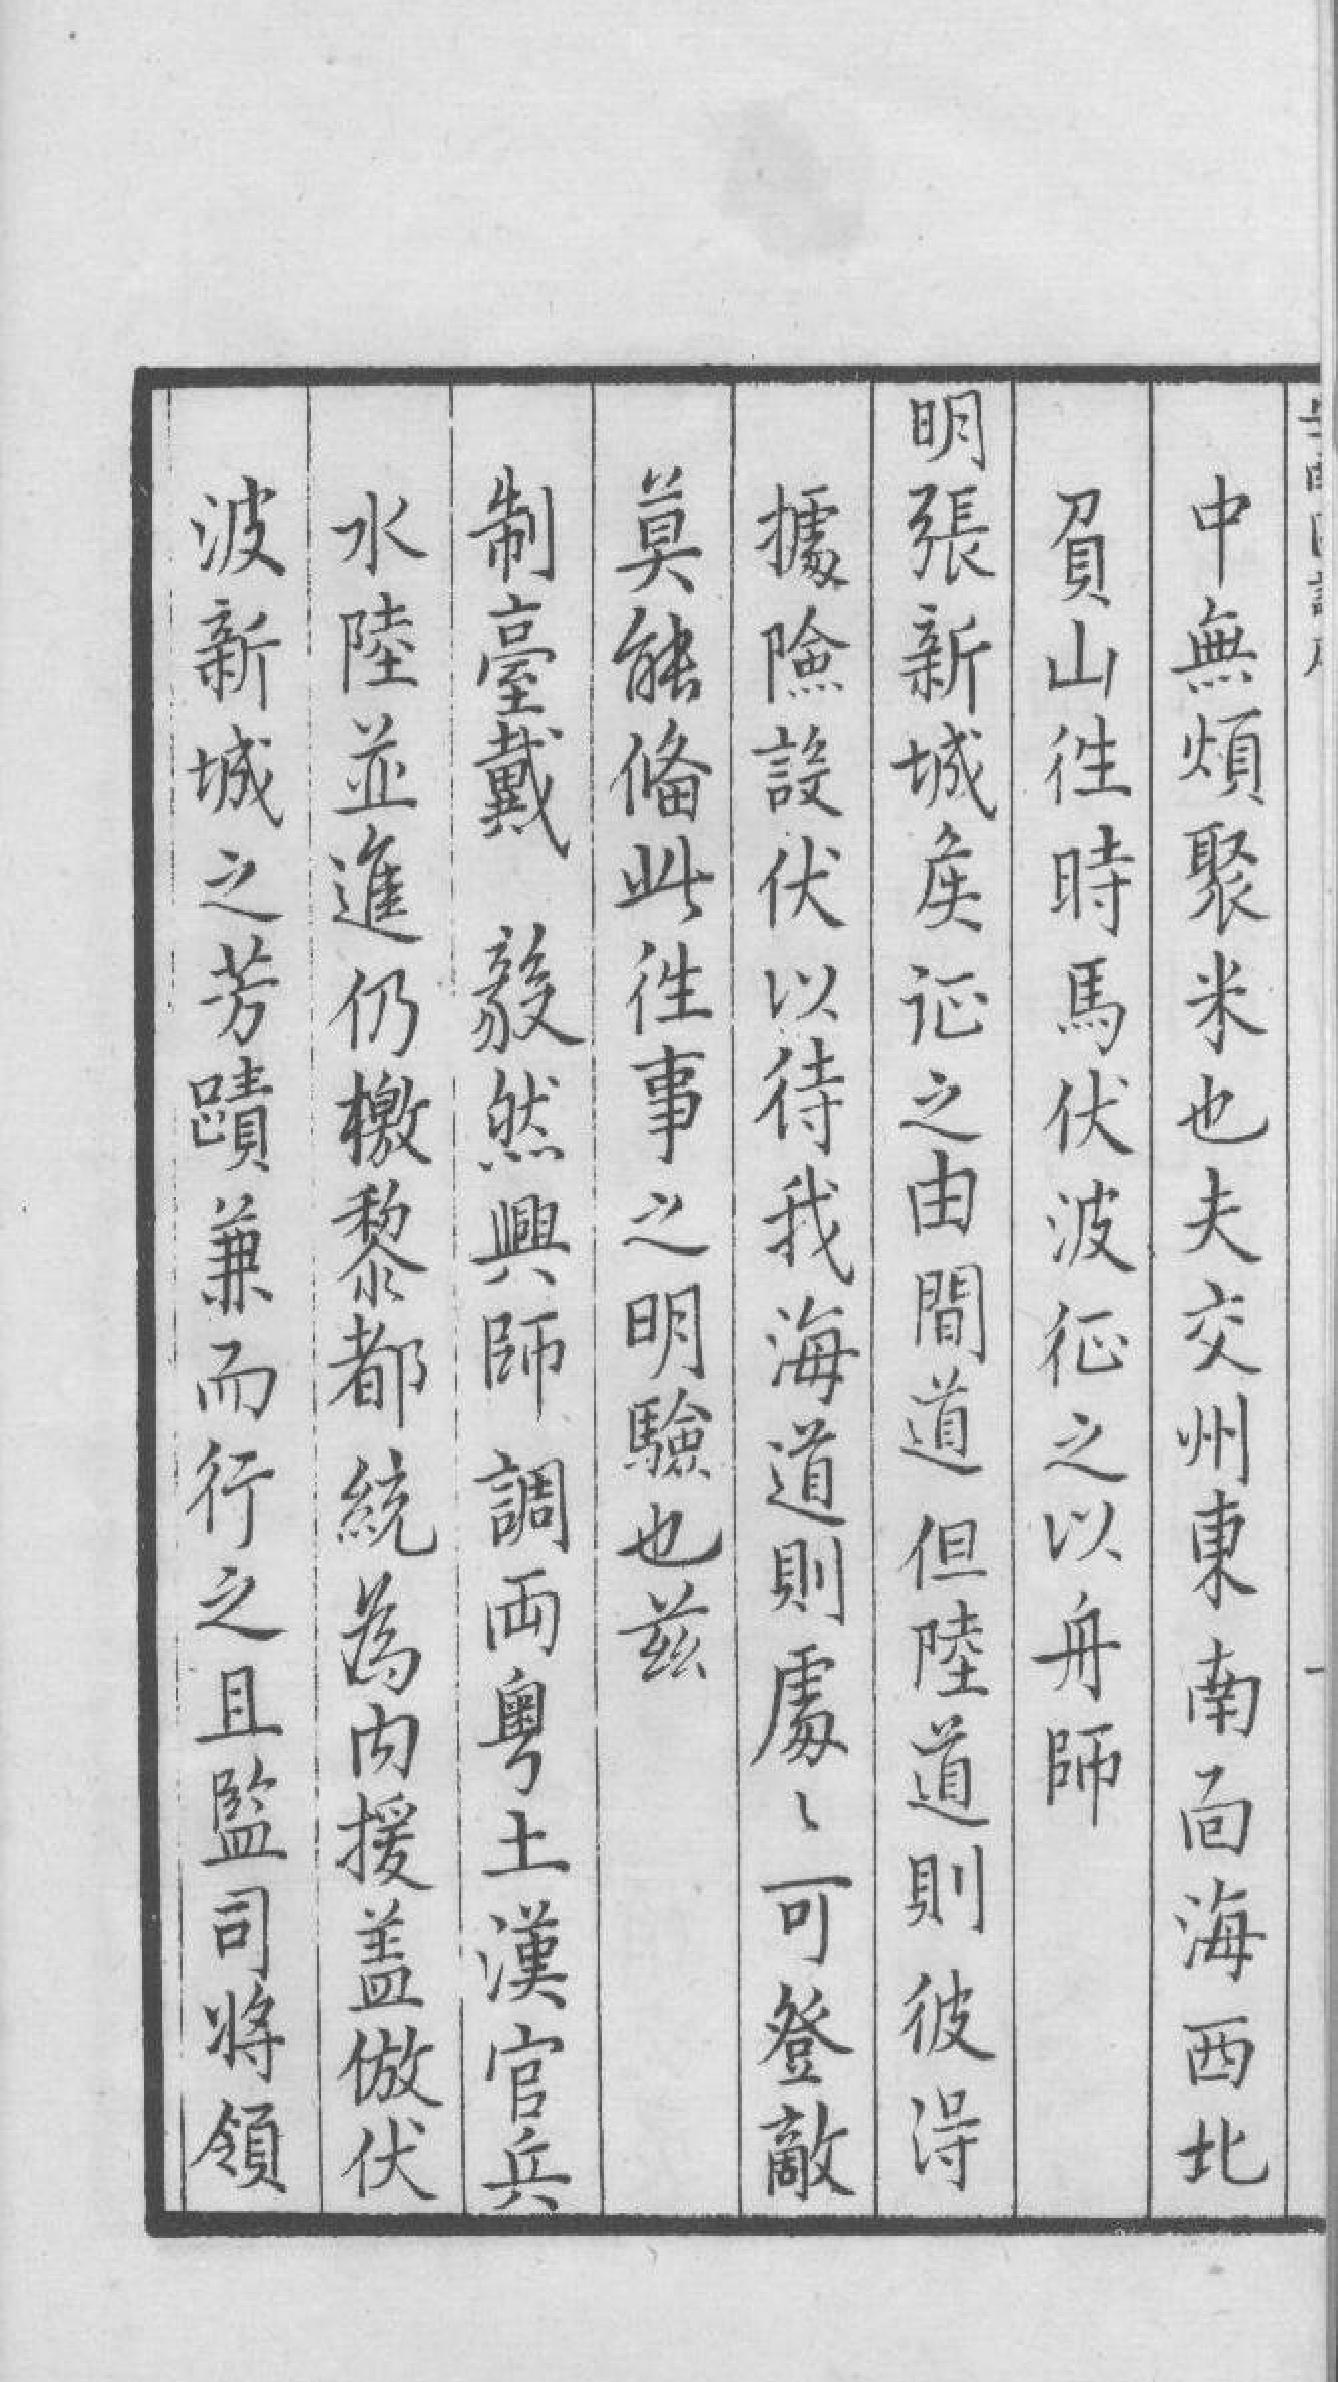 中無煩聚米也夫交州東南面海西北
負山徃時馬伏波征之以舟師
明張新城矦征之由間道但陸道則彼淂
據險設伏以待我海道則䖏〻可登敵
莫能偹此徃事之明驗也兹
制臺戴　毅然興師調両粵土漢官兵
水陸並進仍檄黎都統為内援盖倣伏
波新城之芳蹟兼而行之且監司将領